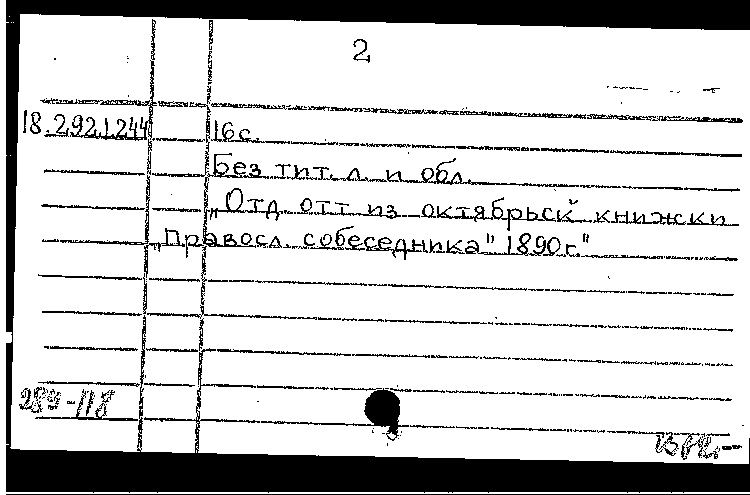 2
18.292.1.244 16 с.
Без тит. л. и обл.
„Отд. отт из октябрьск. книжки
„Правосл. собеседника" 1890 г."
289-118